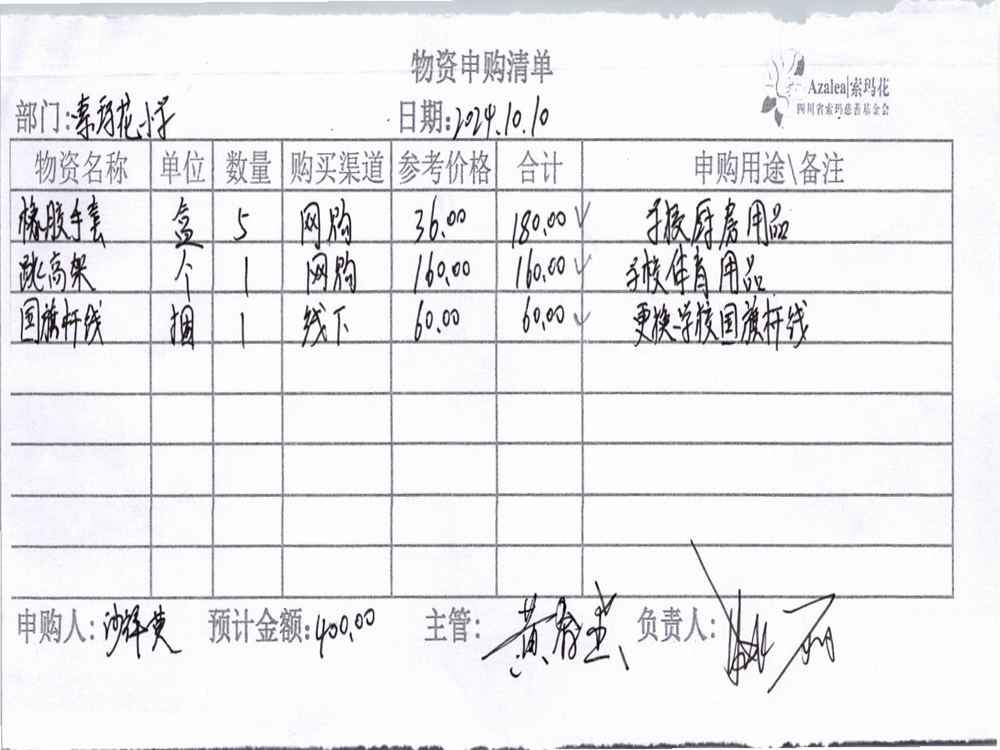 物资申购清单
Azalea|索玛花
四川省索玛慈善基金会
部门:索玛花小学 日期:2024.10.10
物资名称 单位 数量 购买渠道 参考价格 合计 申购用途\备注
橡胶手套 盒 5 网购 36.00 180.00 ✓ 学校厨房用品
跳高架 个 1 网购 160.00 160.00 ✓ 学校体育用品
国旗杆线 捆 1 线下 60.00 60.00 ✓ 更换学校国旗杆线
申购人: 预计金额:400.00 主管: 负责人: